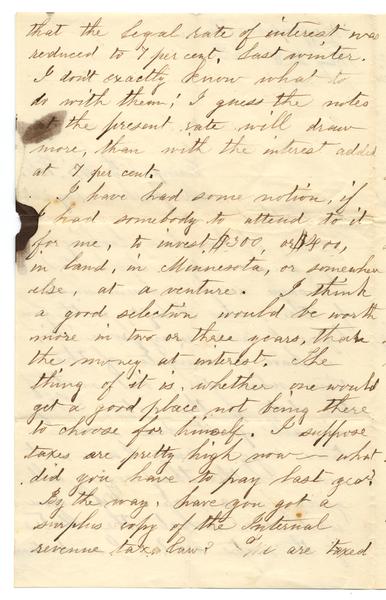 that the legal rate of interest was
reduced to 7 per cent. last winter.
I don't exactly know what to
do with them; I guess the notes
at the present rate will draw
more, than with the interest added
at 7 per cent.
I have had some notion, if
I had somebody to attend to it
for me, to invest $300, or $400,
in land, in Minnesota, or somewhere
else, at a venture. I think
a good selection would be worth
more in two or three years, than
the money at interest. The
thing of it is, whether one would
get a good place not being there
to choose for himself. I suppose
taxes are pretty high now — what
did you have to pay last year?
By the way, have you got a
surplus copy of the Internal
revenue tax law? We are taxed